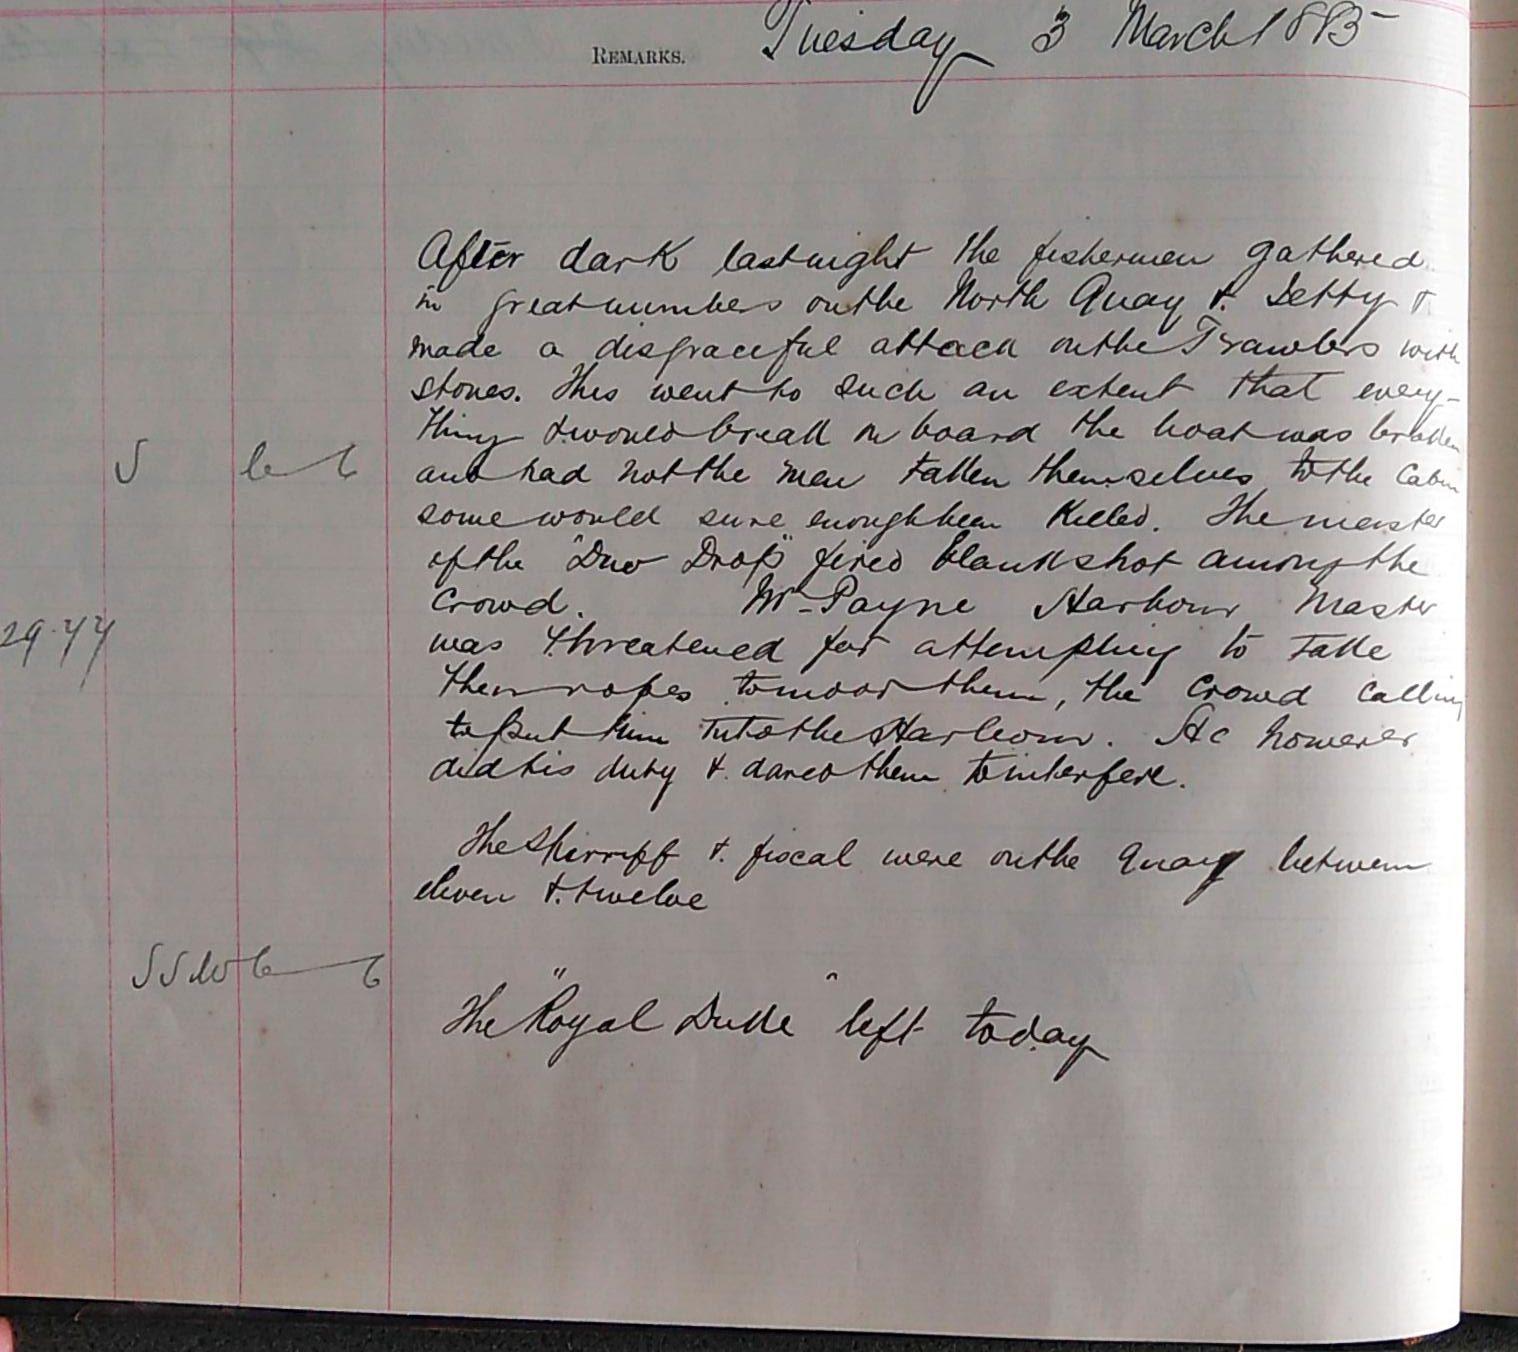 REMARKS. Tuesday 3 March 1885
After dark last night the fishermen gathered
in great numbers on the North Quay & Jetty &
made a disgraceful attack on the Trawlers with
stones. This went to such an extent that every-
thing would break on board the boat was broken
and had not the men taken themselves to the Cabin
some would sure enough been Killed. The master
of the "Dew Drop" fired blank shot among the
Crowd. Mr Payne Harbour Master
was threatened for attempting to take
their ropes to moor them, the Crowd Calling
to put him into the Harbour. He however
S be 6
29.77
did his duty & dared them to interfere.
The Shirriff & fiscal were on the Quay between
eleven & twelve
SSW 6
The "Royal Duke" left today